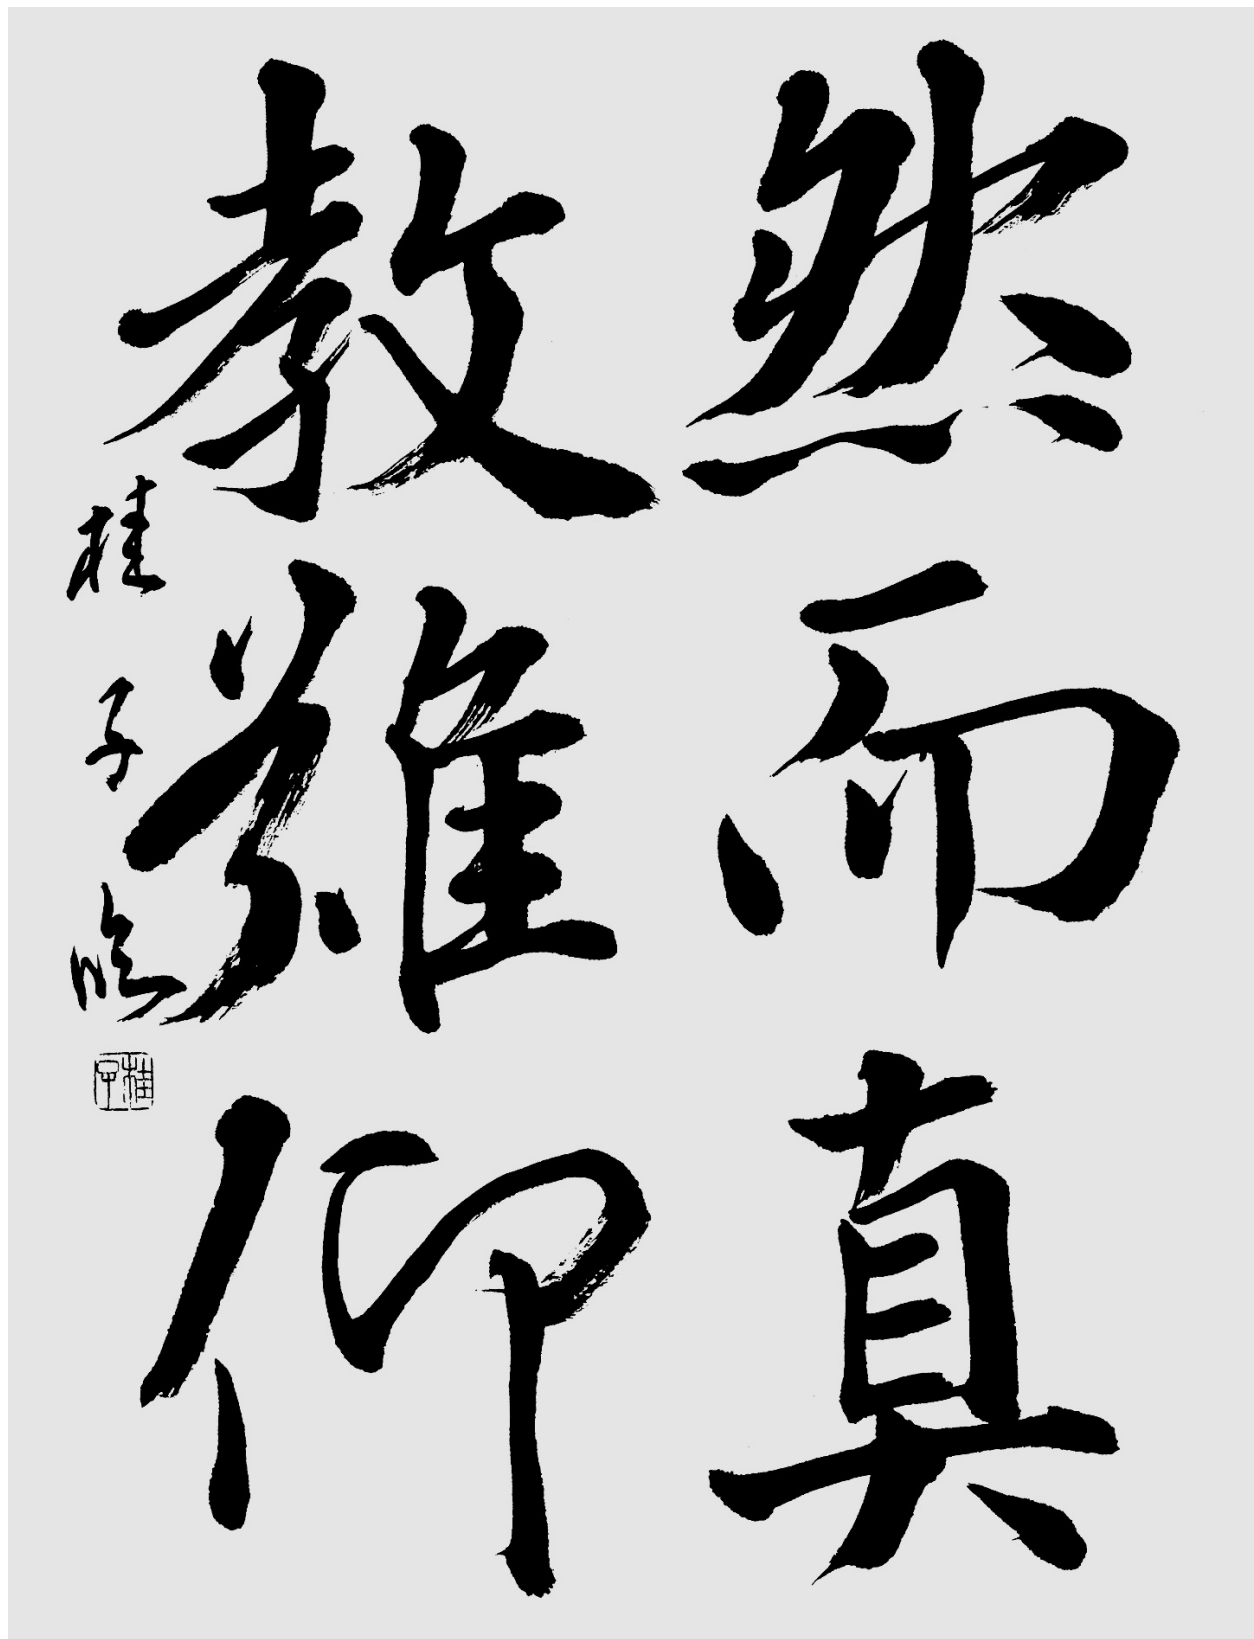 然而真
教難仰
桂子臨
桂子